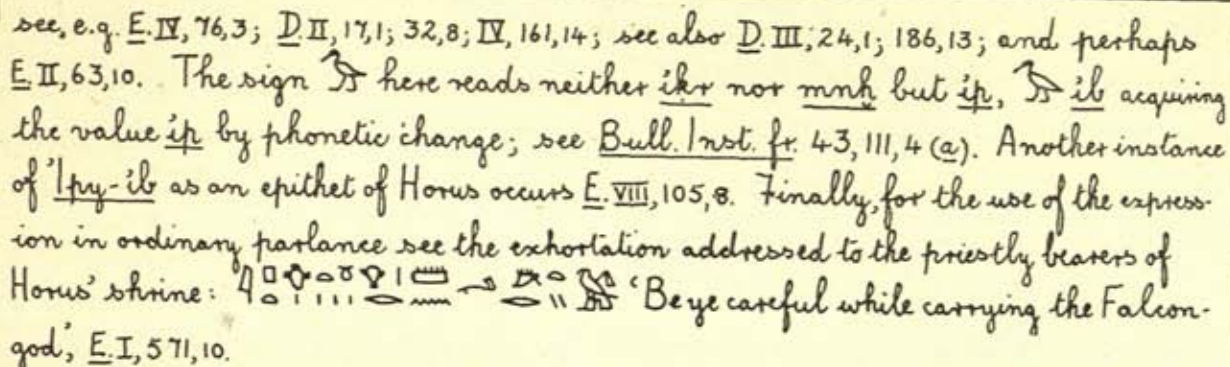 see, e.g. E. IV, 76,3; D. II, 17,1; 32,8; IV, 161,14; see also D. III, 24,1; 186,13; and perhaps
E. II, 63,10. The sign 𓅞 here reads neither iḳr nor mnḫ but ip, 𓅞 ib acquiring
the value ip by phonetic change; see Bull. Inst. fr. 43, 111, 4 (a). Another instance
of 'Ipy-ib as an epithet of Horus occurs E. VIII, 105,8. Finally, for the use of the express-
ion in ordinary parlance see the exhortation addressed to the priestly bearers of
Horus' shrine: 'Be ye careful while carrying the Falcon-
god', E. I, 571,10.